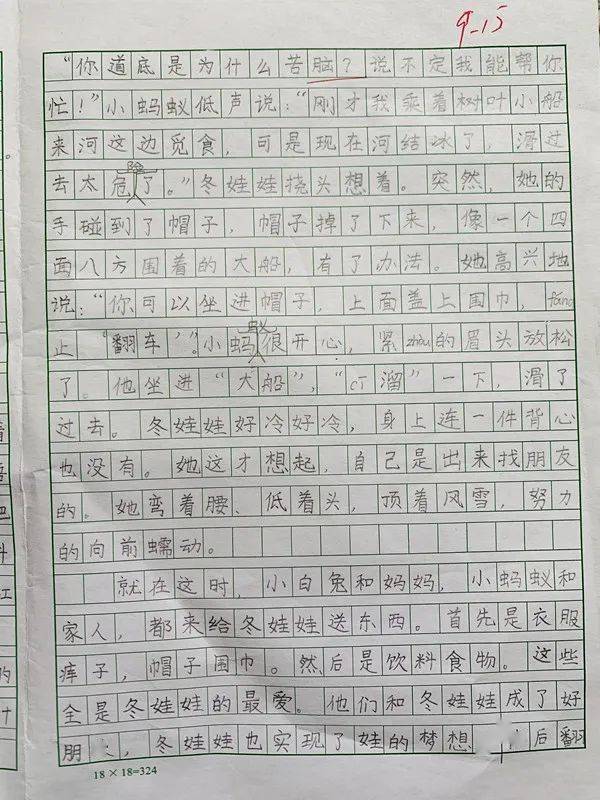 9.15
“你道底是为什么苦脑？说不定我能帮你
忙！”小蚂蚁低声说：“刚才我乘着树叶小船
来河这边觅食，可是现在河结冰了，滑过
去太危险了。”冬娃娃挠头想着。突然，她的
手碰到了帽子，帽子掉了下来，像一个四
面八方围着的大船，有了办法。她高兴地
说：“你可以坐进帽子，上面盖上围巾，fáng
止“翻车’”。小蚂蚁很开心，紧zhòu的眉头放松
了。他坐进“大船”，“cī溜”一下，滑了
过去。冬娃娃好冷好冷，身上连一件背心
也没有。她这才想起，自己是出来找朋友
的。她弯着腰、低着头，顶着风雪，努力
的向前蠕动。
就在这时，小白兔和妈妈，小蚂蚁和
家人，都来给冬娃娃送东西。首先是衣服
库子，帽子围巾。然后是饮料食物。这些
全是冬娃娃的最爱。他们和冬娃娃成了好
朋，冬娃娃也实现了娃的梦想后翻
18×18=324